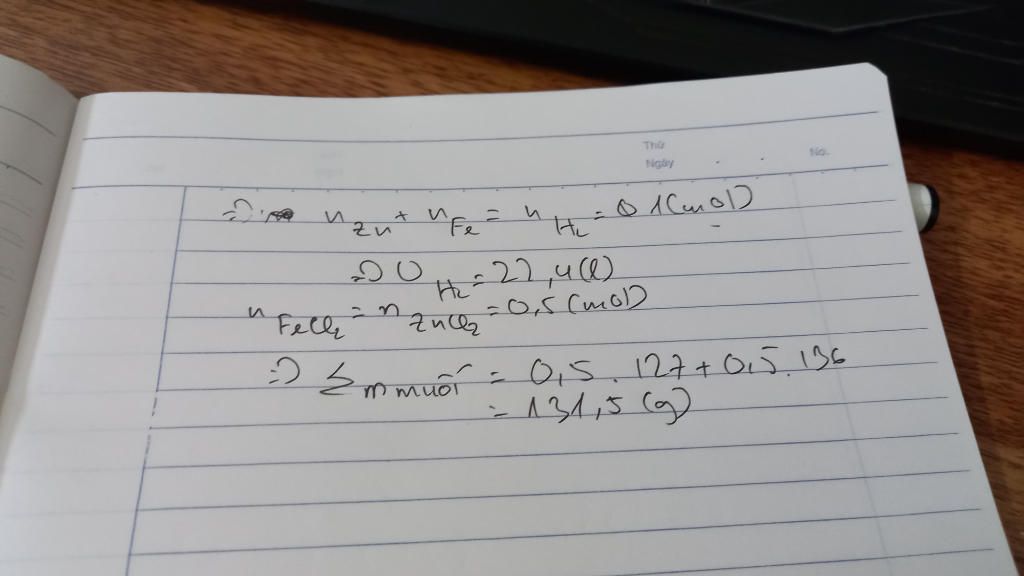 Thứ
Ngày . . No.
=> n Zn + n Fe = n H2 = 0 1 (mol)
=> V H2 = 22,4 (l)
n FeCl2 = n ZnCl2 = 0,5 (mol)
=> Σ m muối = 0,5 . 127 + 0,5 . 136
= 131,5 (g)